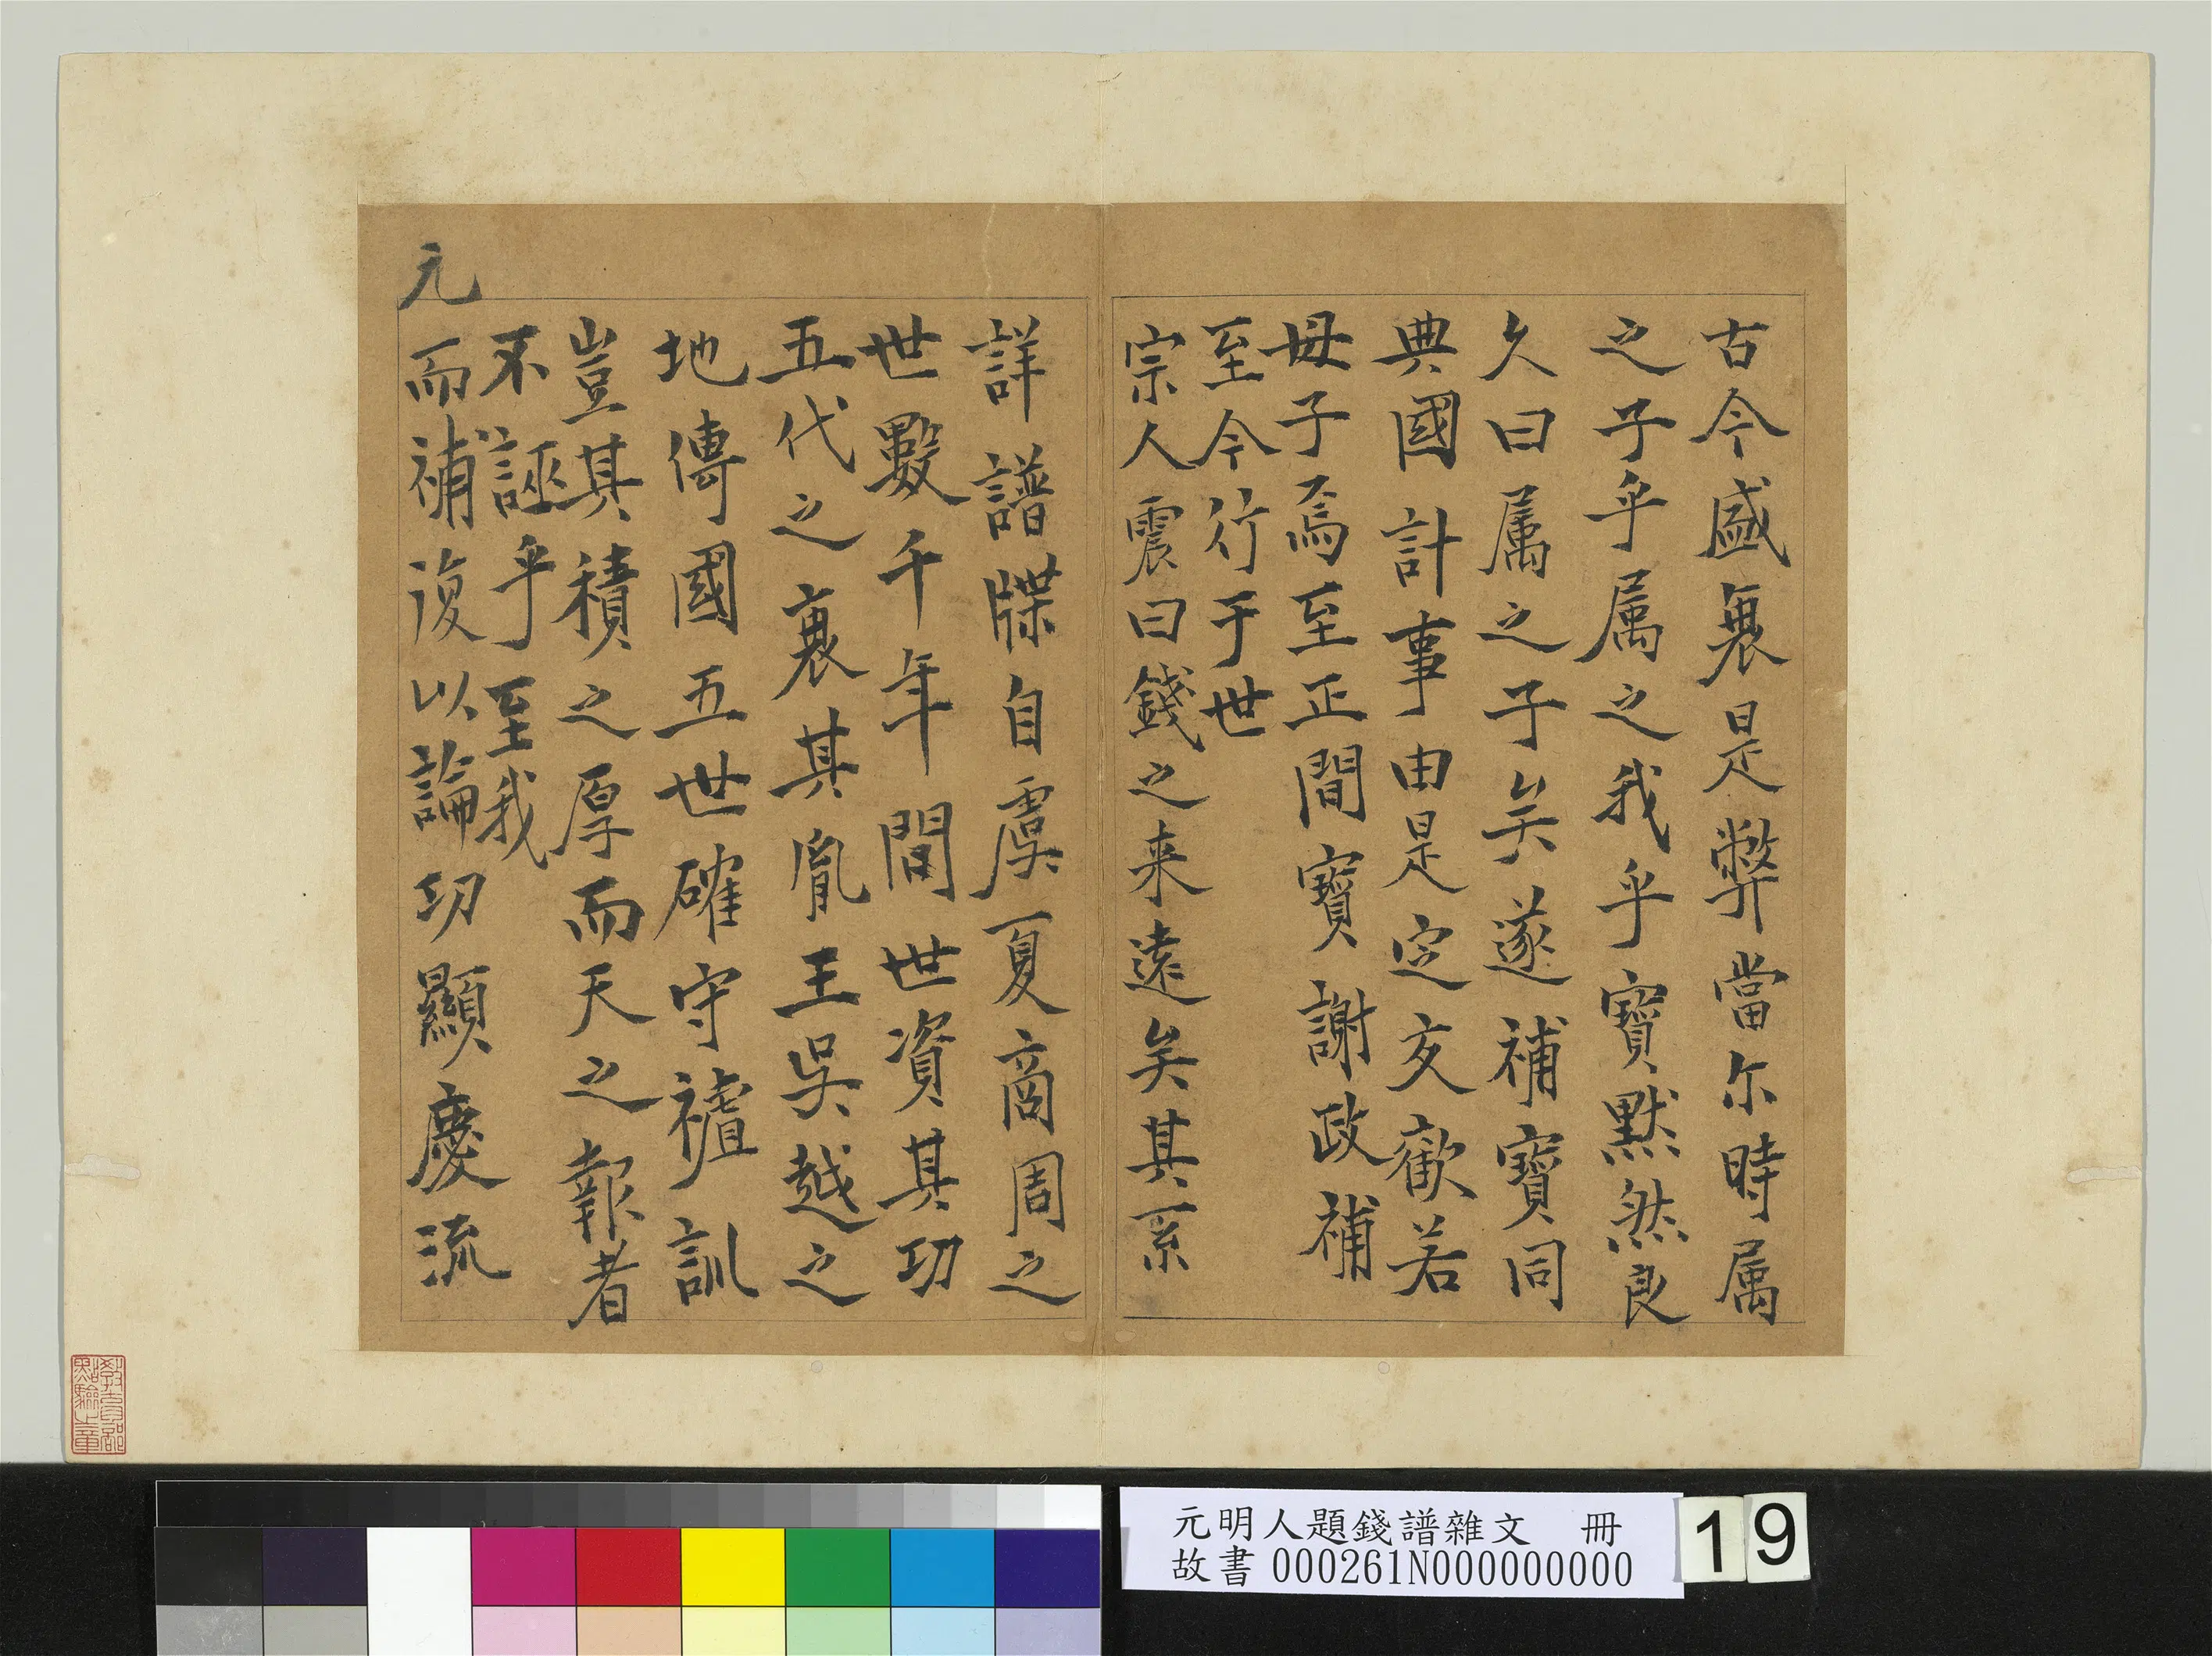 古今盛衰是弊當尔時属
之子乎属之我乎寳默然良
久曰属之子矣遂補寳同
典國計事由是定交歡若
母子焉至正間寳謝政補
至今行于世
宗人震曰錢之来遠矣其系
詳譜牒自虞夏商周之
世數千年間世資其功
五代之衰其胤王吳越之
地傳國五世確守
訓
豈其積之厚而天之報者
不誣乎至我
元而補復以論功顯慶流
元明人題錢譜雜文 冊
故書 000261N000000000
19
教育部
點驗之章